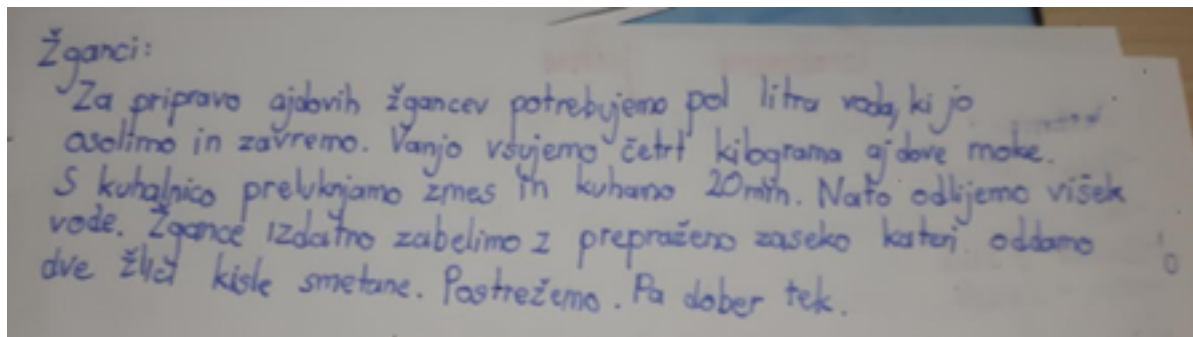 Žganci:
Za pripravo ajdovih žgancev potrebujemo pol litra vode, ki jo
osolimo in zavremo. Vanjo vsujemo četrt kilograma ajdove moke.
S kuhalnico preluknjamo zmes in kuhamo 20min. Nato odlijemo višek
vode. Žgance izdatno zabelimo z prepraženo zaseko kateri oddamo
dve žlici kisle smetane. Postrežemo. Pa dober tek.